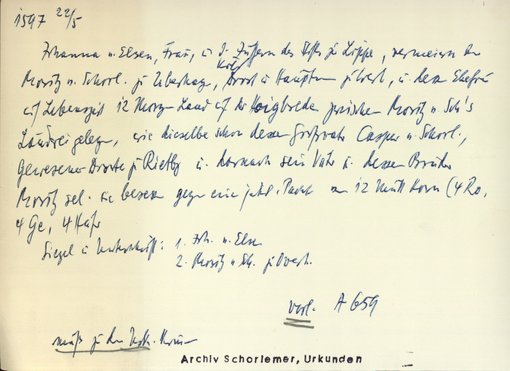 1597 22/5
Johanna v. Elsen, Frau, u. d. Jungfern des Stifts zu Lippe, vermeiern den
Moritz v. Schorl. zu Überhagen, Drost u. Hauptm. zu Werl, u. dessen Ehefrau
auf Lebenszeit 12 Morgen Land auf der zwischen Moritz v. Sch's
Länderei gelegen, wie dieselbe schon dessen Großvater Caspar v. Schorl.,
Gewesener Droste zu Rietbg u. darnach sein Vater u. dessen Bruder
Moritz sel. besessen gegen eine jährl. Pacht von 12 Mütt Korn (4 Ro,
4 Ge, 4 Hafer
Siegel u. Unterschrift: 1. Joh. v. Elsen
2. Moritz v. Sch. zu Overh.
verl. A 659
zu den
Archiv Schorlemer, Urkunden